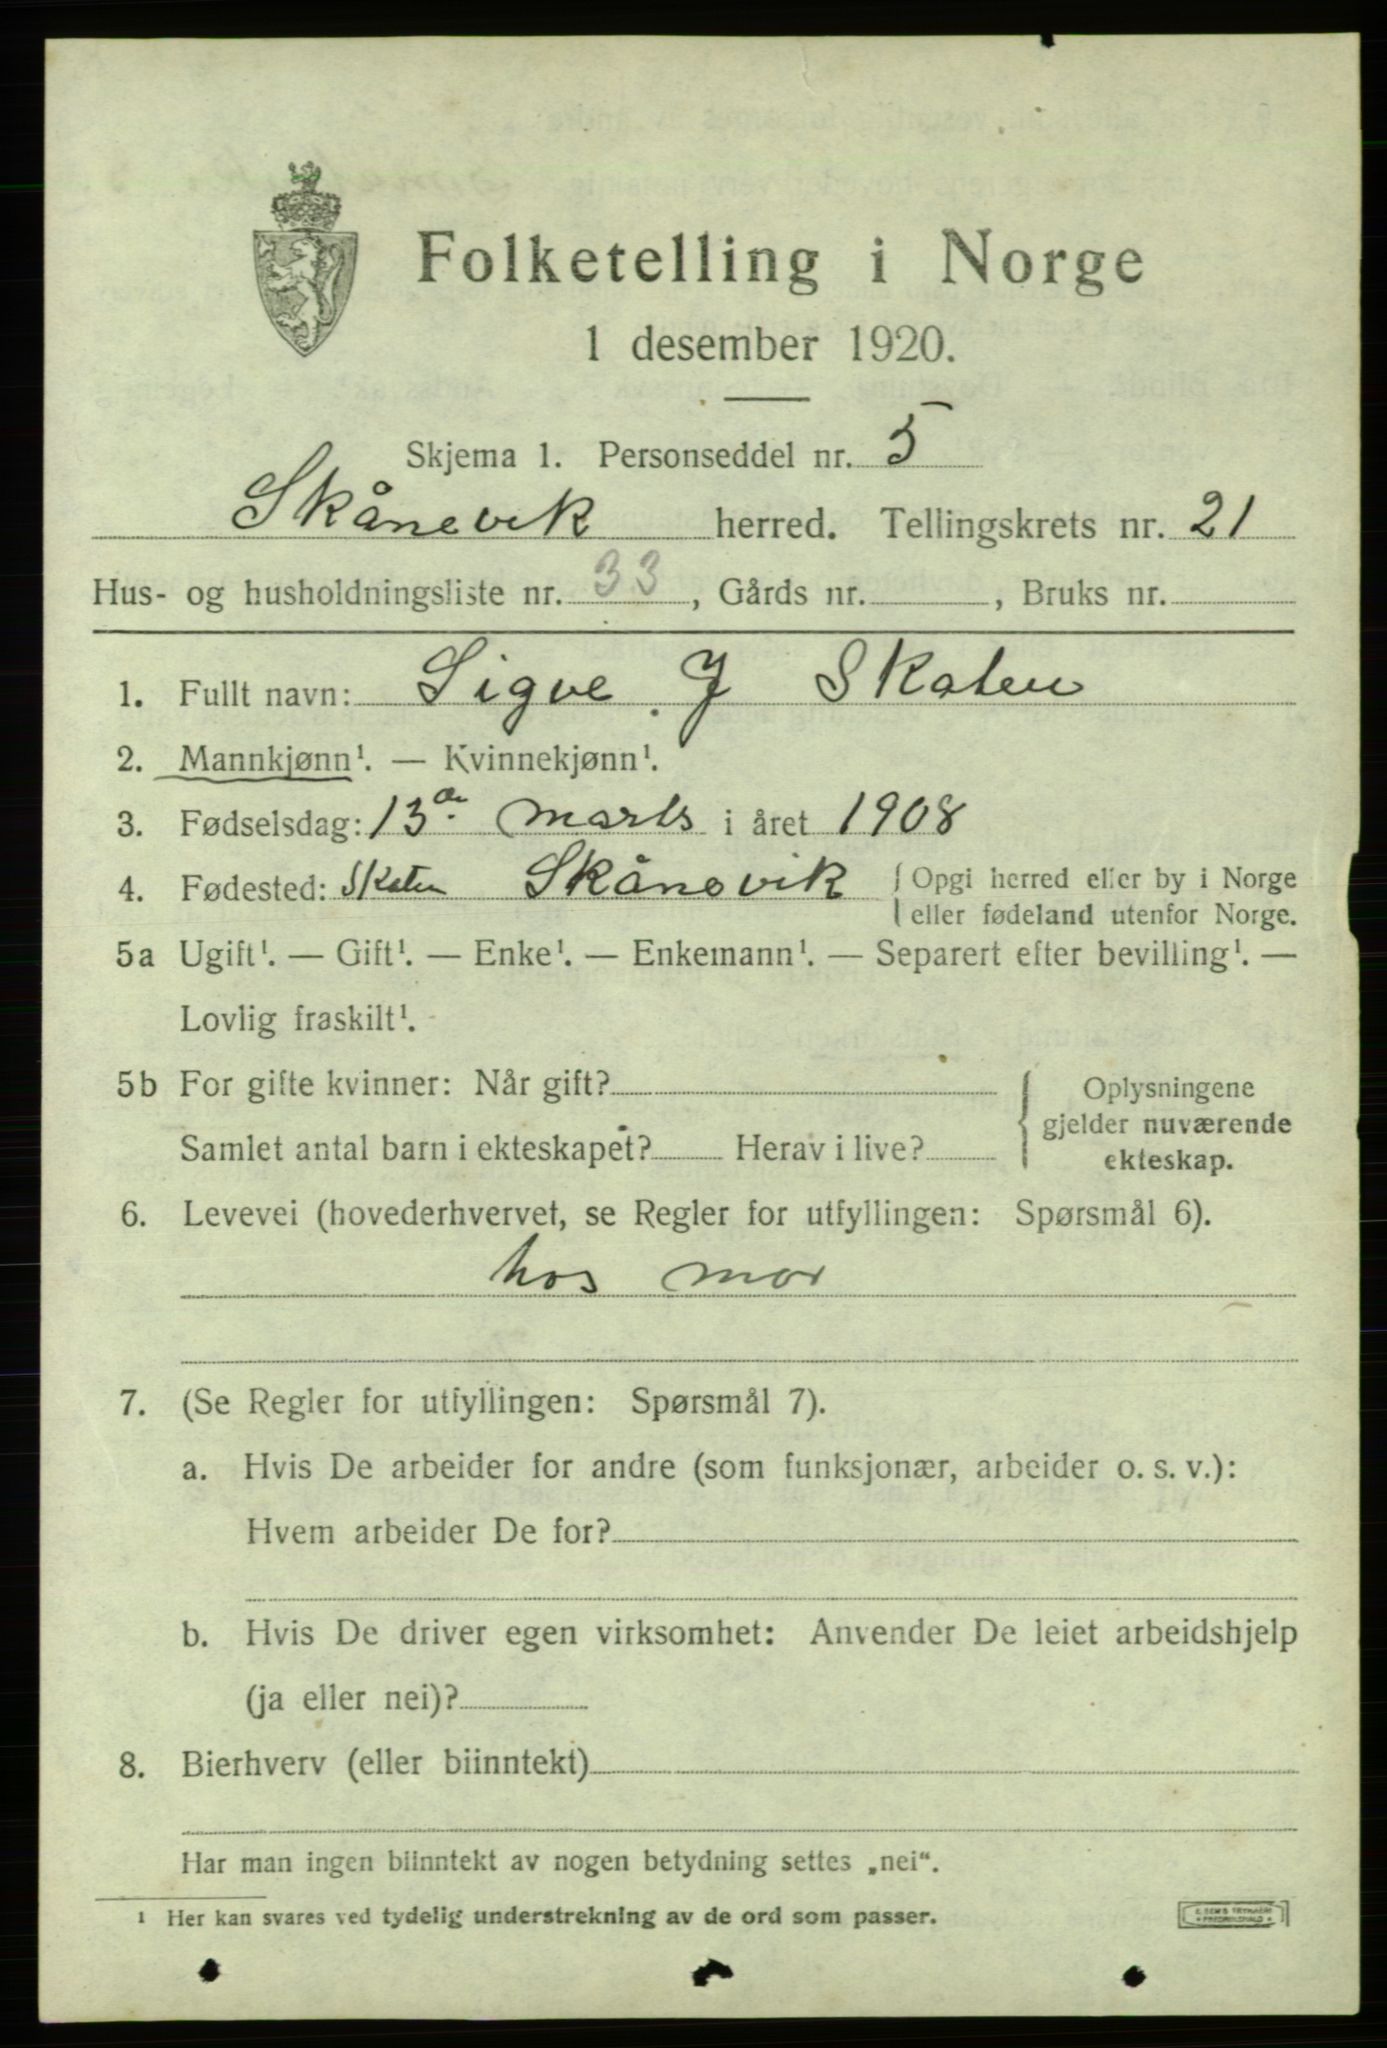 Folketelling i Norge
1 desember 1920.
Skjema 1. Personseddel nr. 5
Skånevik herred. Tellingskrets nr. 21
Hus- og husholdningsliste nr. 33, Gårds nr. , Bruks nr.
1. Fullt navn: Sigve J Skaten
2. Mannkjønn¹. — Kvinnekjønn¹.
3. Fødselsdag: 13de marts i året 1908
4. Fødested: Skaten Skånevik { Opgi herred eller by i Norge
eller fødeland utenfor Norge.
5a Ugift¹. — Gift¹. — Enke¹. — Enkemann¹. — Separert efter bevilling¹. —
Lovlig fraskilt¹.
5b For gifte kvinner: Når gift? { Oplysningene
gjelder nuværende
Samlet antal barn i ekteskapet? Herav i live?
ekteskap.
6. Levevei (hovederhvervet, se Regler for utfyllingen: Spørsmål 6).
hos mor
7. (Se Regler for utfyllingen: Spørsmål 7).
a. Hvis De arbeider for andre (som funksjonær, arbeider o. s. v.):
Hvem arbeider De for?
b. Hvis De driver egen virksomhet: Anvender De leiet arbeidshjelp
(ja eller nei)?
8. Bierhverv (eller biinntekt)
Har man ingen biinntekt av nogen betydning settes „nei“.
¹ Her kan svares ved tydelig understrekning av de ord som passer.